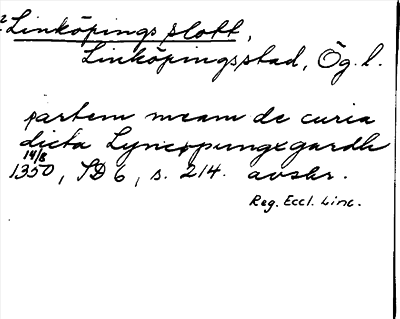 Linköpings slott,
Linköpings stad, Ög. l.
partem meam de curia
dicta Lyncopungxgardh
14/8
1350, SD 6, s. 214. avskr.
Reg. Eccl. Linc.